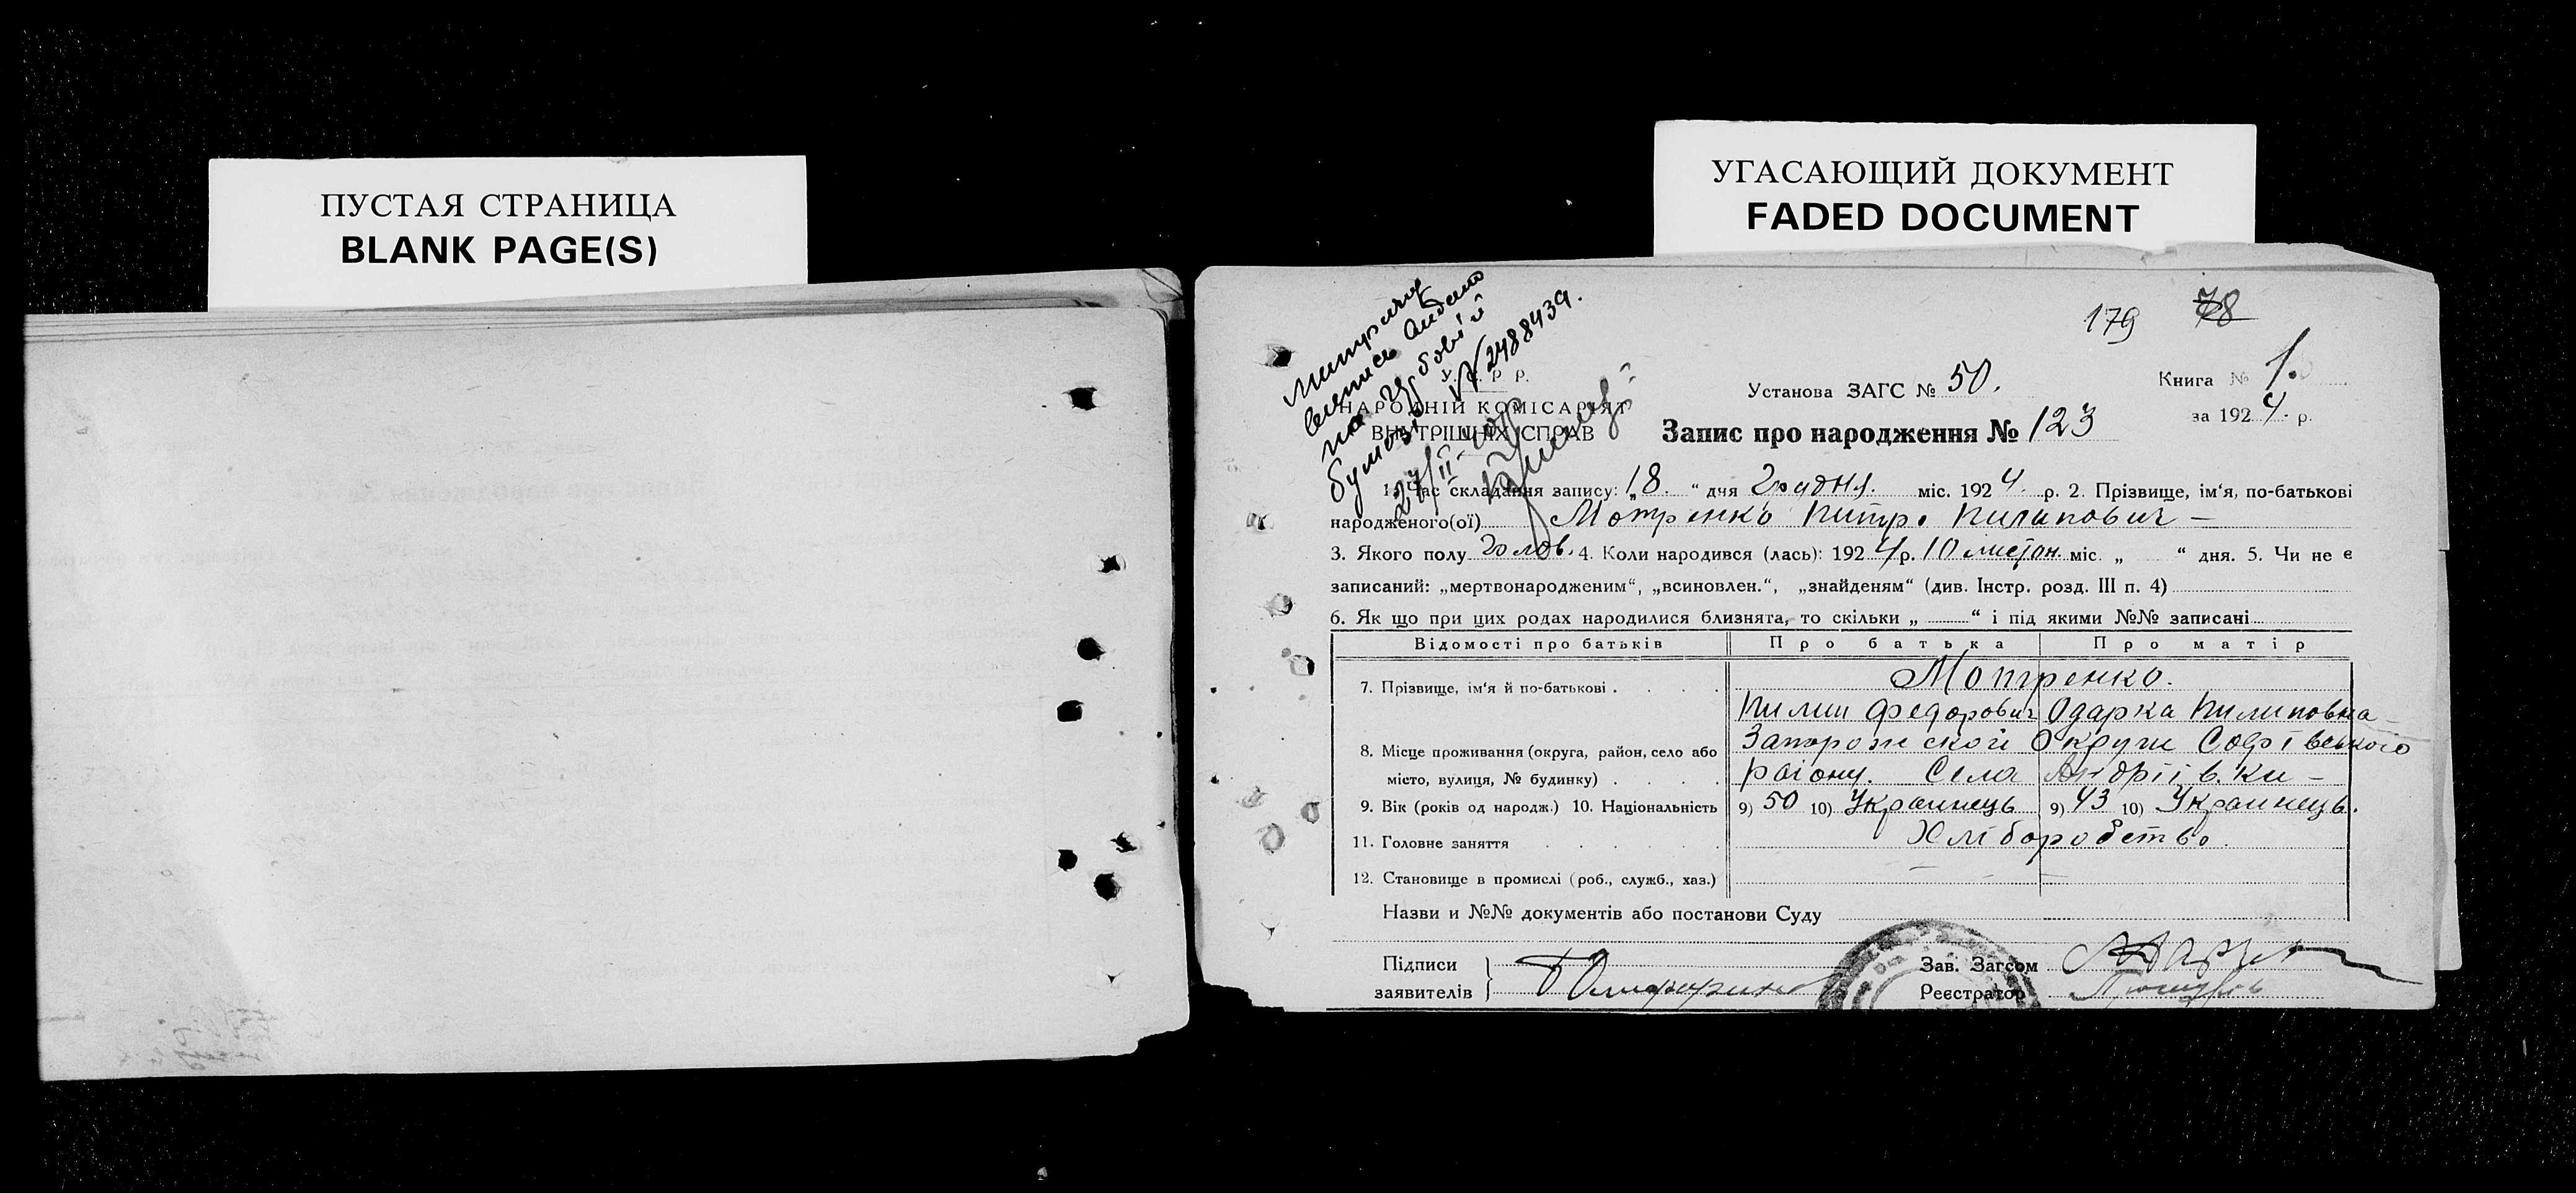 ПУСТАЯ СТРАНИЦА
BLANK PAGE(S)
УГАСАЮЩИЙ ДОКУМЕНТ
FADED DOCUMENT
179 78
№ 2488439.
У. С. Р. Р.
НАРОДНІЙ КОМІСАРІЯТ
ВНУТРІШНІХ СПРАВ
Установа ЗАГС № 50.
Книга № 1.
за 1924 р.
Запис про народження № 123
1. Час складання запису: „18. “ дня Грудня. міс. 1924. р. 2. Прізвище, ім‘я, по-батькові
народженого(ої) Мотренко Питро Пилипович —
3. Якого полу Голов. 4. Коли народився (лась): 1924 р. 10 листоп. міс. „ “ дня. 5. Чи не є
записаний: „мертвонародженим“, „всиновлен.“, „знайденям“ (див. Інстр. розд. III п. 4)
6. Як що при цих родах народилися близнята, то скільки „ “ і під якими №№ записані
Відомості про батьків Про батька Про матір
7. Прізвище, ім‘я й по-батькові . . . . Мотренко.
Пилип Федорович Одарка Пилиповна
8. Місце проживання (округа, район, село або
місто, вулиця, № будинку) . . . .
Запорожской Округи Софіївського
району. Села Андріївки —
9. Вік (років од народж.) 10. Національність 9) 50 10) Украинець 9) 43 10) Украинець.
11. Головне заняття . . . . . . Хліборобство.
12. Становище в промислі (роб., служб., хаз.) — —
Назви и №№ документів або постанови Суду
Підписи
заявителів
Зав. Загсом
Реєстратор